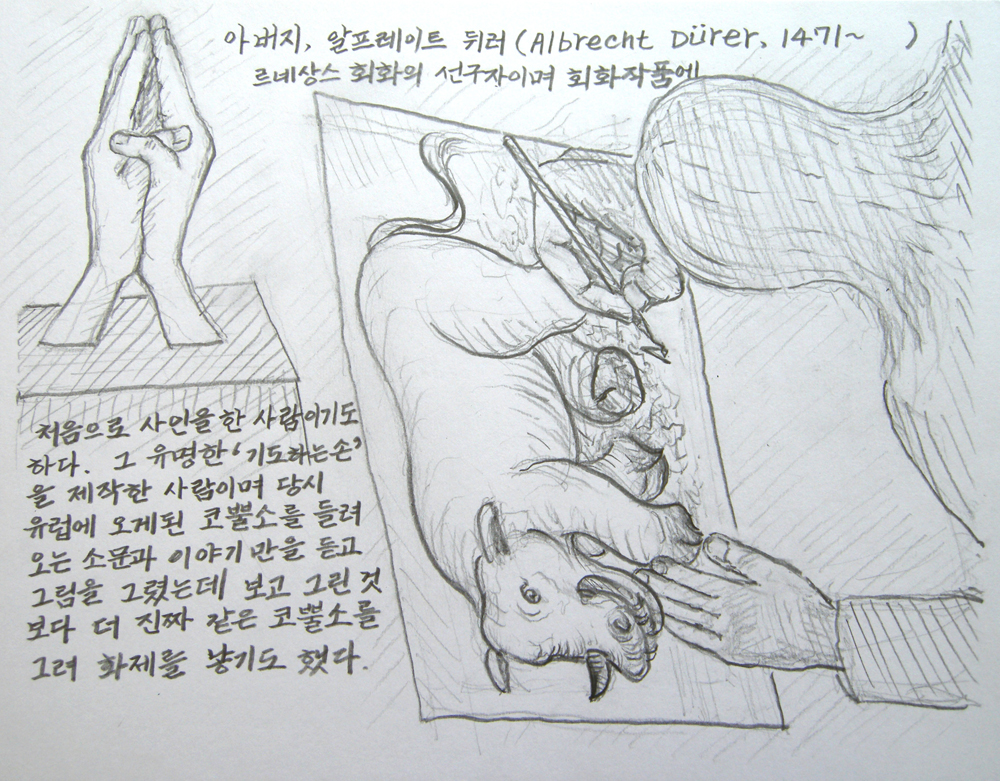 아버지, 알프레이트 뒤러 (Albrecht Dürer, 1471~ )
르네상스 회화의 선구자이며 회화작품에
처음으로 사인을 한 사람이기도
하다. 그 유명한 '기도하는손'
을 제작한 사람이며 당시
유럽에 오게된 코뿔소를 들려
오는 소문과 이야기 만을 듣고
그림을 그렸는데 보고 그린 것
보다 더 진짜 같은 코뿔소를
그려 화제를 낳기도 했다.